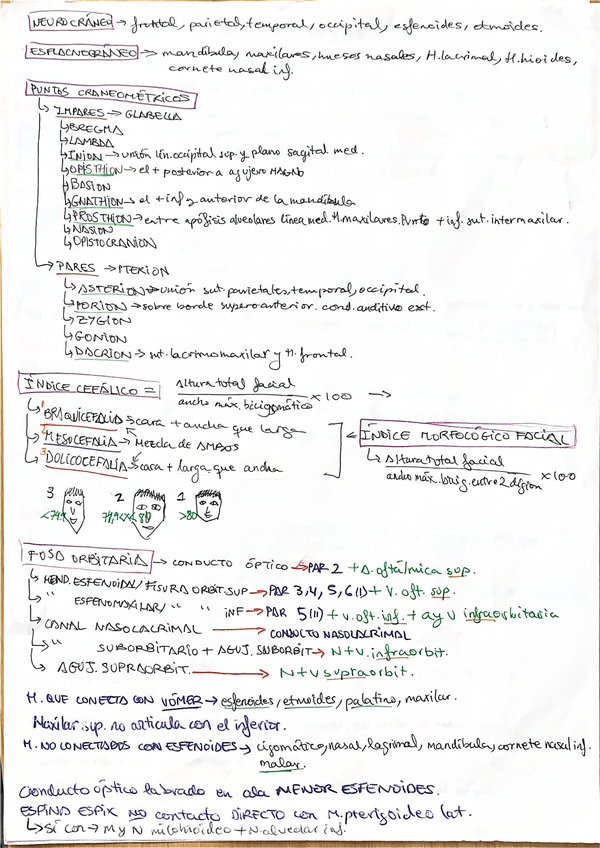 NEUROCRÁNEO → frontal, parietal, temporal, occipital, esfenoides, etmoides.
ESPLACNOCRÁNEO → mandíbula, maxilares, huesos nasales, H. lacrimal, H. hioides,
cornete nasal inf.
PUNTOS CRANEOMÉTRICOS
↳ IMPARES → GLABELLA
↳ BREGMA
↳ LAMBDA
↳ INION → unión lín. occipital sup. y plano sagital med.
↳ OPISTHION → el + posterior a agujero MAGNO
↳ BASION
↳ GNATHION → el + inf y anterior de la mandíbula
↳ PROSTHION → entre apófisis alveolares línea med. H. maxilares. Punto + inf. sut. intermaxilar.
↳ NASION
↳ OPISTOCRANION
↳ PARES → PTERION
↳ ASTERION → unión sut. parietales, temporal, occipital.
↳ PORION → sobre borde superoanterior. cond. auditivo ext.
↳ ZYGION
↳ GONION
↳ DACRION → sut. lacrimomaxilar y H. frontal.
ÍNDICE CEFÁLICO = Altura total facial / ancho máx. bicigomático × 100 →
1 ↳ BRAQUICEFALIA → cara + ancha que larga
2 ↳ MESOCEFALIA → Mezcla de AMBOS
3 ↳ DOLICOCEFALIA → cara + larga que ancha
← ÍNDICE MORFOLÓGICO FACIAL
↳ Altura total facial / ancho máx. × 100
3 2 1
<74,9 >80
FOSA ORBITARIA → CONDUCTO ÓPTICO → PAR 2 + A. oftálmica sup.
↳ HEND. ESFENOIDAL / FISURA ORBIT. SUP → PAR 3, 4, 5, 6 (I) + V. oft. sup.
↳ " ESFENOMAXILAR / " " INF → PAR 5 (II) + v. oft. inf. + a y v infraorbitaria
↳ CANAL NASOLACRIMAL → CONDUCTO NASOLACRIMAL
↳ " SUBORBITARIO + AGUJ. SUBORBIT → N + V. infraorbit.
↳ AGUJ. SUPRAORBIT. → N + V supraorbit.
H. QUE CONECTA CON VÓMER → esfenoides, etmoides, palatino, maxilar.
Maxilar sup. no articula con el inferior.
H. NO CONECTADOS CON ESFENOIDES → cigomático, nasal, lagrimal, mandíbula, cornete nasal inf.
malar.
Conducto óptico labrado en ala MENOR ESFENOIDES.
ESPINA ESPIX NO contacto DIRECTO con M. pterigoideo lat.
↳ Sí con → M y N milohioideo + N. alveolar inf.